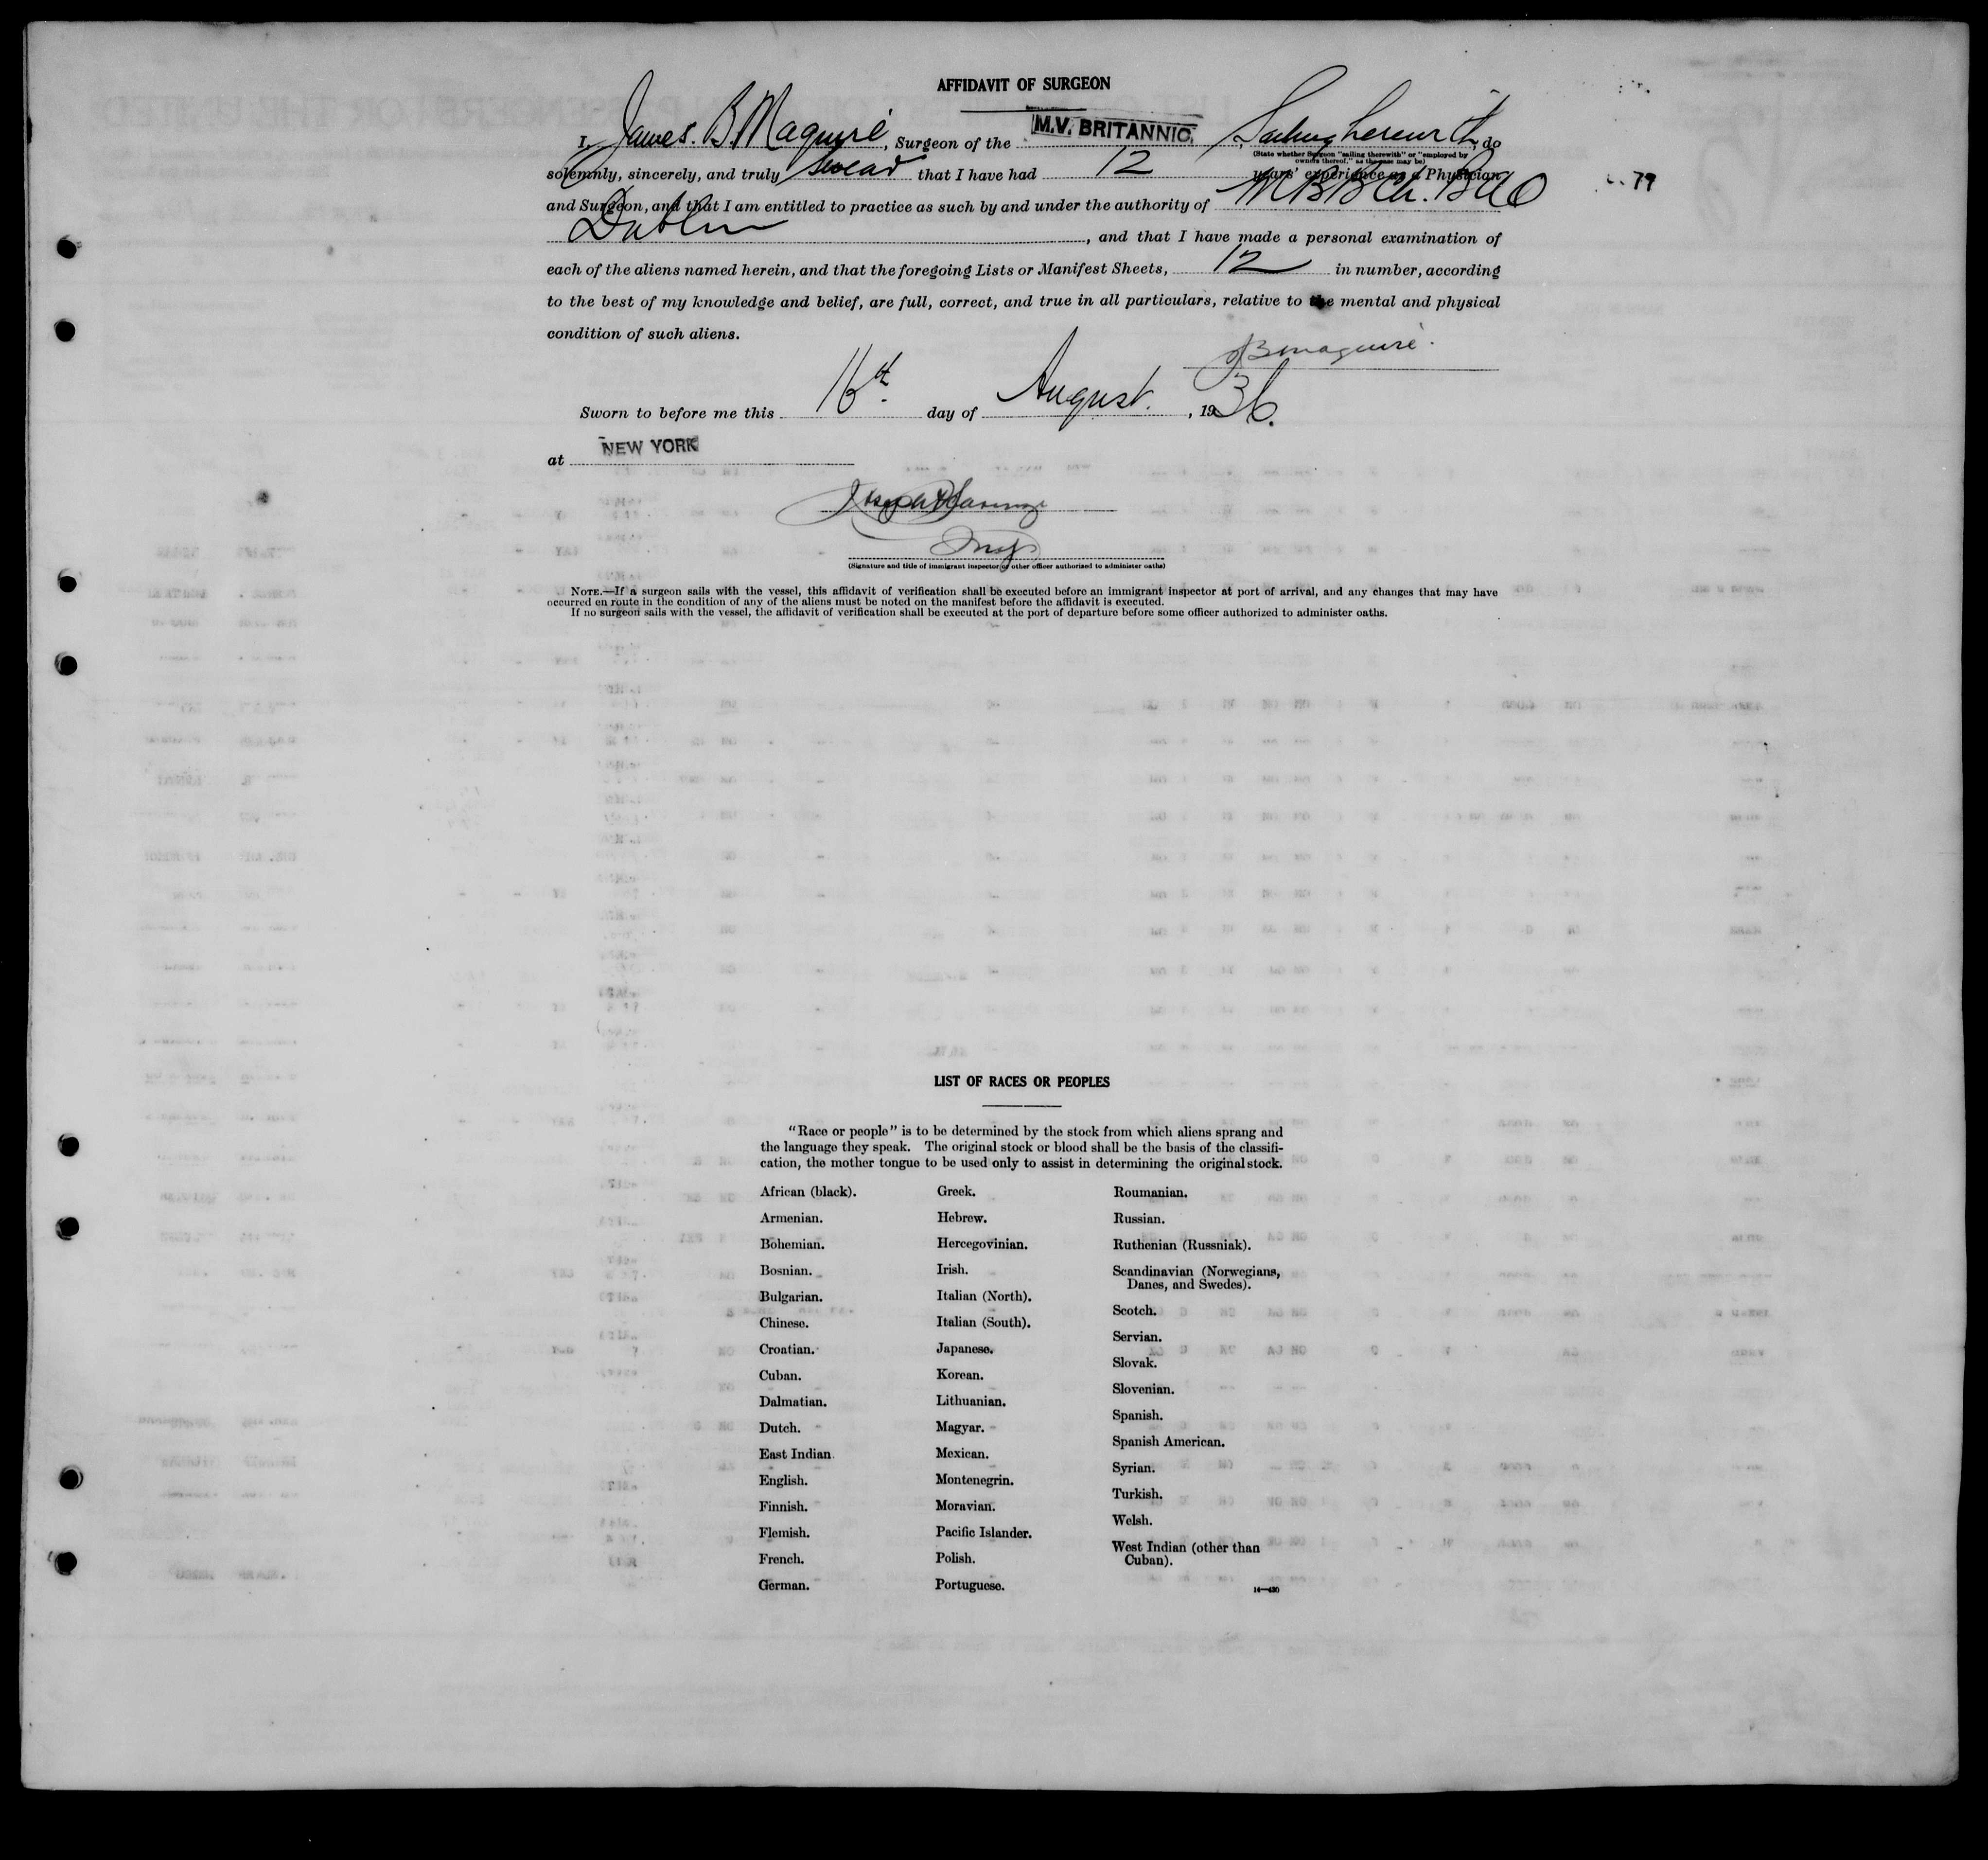 AFFIDAVIT OF SURGEON
I, James. B. Maguire, Surgeon of the M.V. BRITANNIC, Sailing herewith, do
(State whether Surgeon "sailing therewith" or "employed by
owners thereof," as the case may be)
solemnly, sincerely, and truly swear that I have had 12 years' experience as a Physician
79
and Surgeon, and that I am entitled to practice as such by and under the authority of M B B Ch. B A O
Dublin, and that I have made a personal examination of
each of the aliens named herein, and that the foregoing Lists or Manifest Sheets, 12 in number, according
to the best of my knowledge and belief, are full, correct, and true in all particulars, relative to the mental and physical
condition of such aliens.
JBMaguire.
Sworn to before me this 16th. day of August., 1936.
at NEW YORK
(Signature and title of immigrant inspector or other officer authorized to administer oaths)
NOTE.—If a surgeon sails with the vessel, this affidavit of verification shall be executed before an immigrant inspector at port of arrival, and any changes that may have
occurred en route in the condition of any of the aliens must be noted on the manifest before the affidavit is executed.
If no surgeon sails with the vessel, the affidavit of verification shall be executed at the port of departure before some officer authorized to administer oaths.
LIST OF RACES OR PEOPLES
"Race or people" is to be determined by the stock from which aliens sprang and
the language they speak. The original stock or blood shall be the basis of the classifi-
cation, the mother tongue to be used only to assist in determining the original stock.
African (black).
Armenian.
Bohemian.
Bosnian.
Bulgarian.
Chinese.
Croatian.
Cuban.
Dalmatian.
Dutch.
East Indian.
English.
Finnish.
Flemish.
French.
German.
Greek.
Hebrew.
Hercegovinian.
Irish.
Italian (North).
Italian (South).
Japanese.
Korean.
Lithuanian.
Magyar.
Mexican.
Montenegrin.
Moravian.
Pacific Islander.
Polish.
Portuguese.
Roumanian.
Russian.
Ruthenian (Russniak).
Scandinavian (Norwegians,
Danes, and Swedes).
Scotch.
Servian.
Slovak.
Slovenian.
Spanish.
Spanish American.
Syrian.
Turkish.
Welsh.
West Indian (other than
Cuban).
14—430